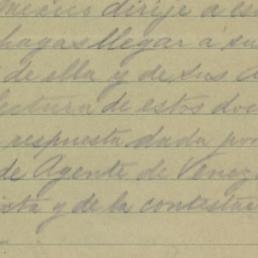 Mexico dirije a es
hagas llegar á su
de ella y de sus
lectura de estos doc
respuesta dada por
de Agente de Venez
ista y de la contestac